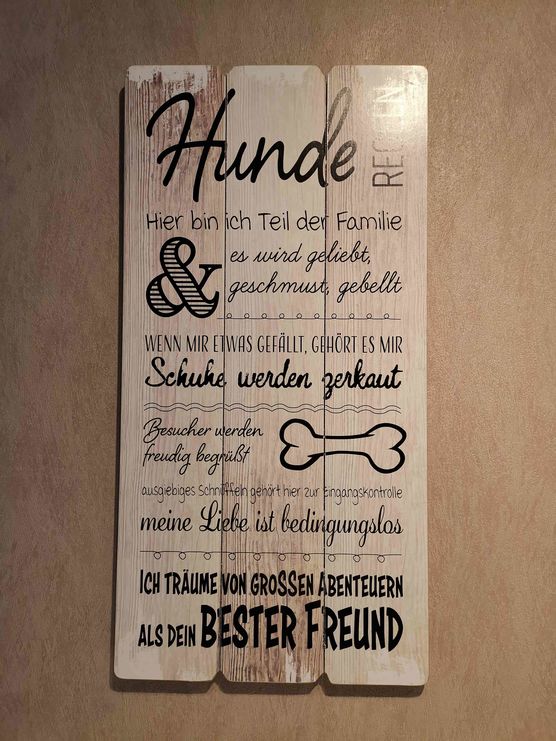 Hunde
REGELN
Hier bin ich Teil der Familie
& es wird geliebt,
geschmust, gebellt
WENN MIR ETWAS GEFÄLLT, GEHÖRT ES MIR
Schuhe werden zerkaut
Besucher werden
freudig begrüßt
ausgiebiges Schnüffeln gehört hier zur Eingangskontrolle
meine Liebe ist bedingungslos
ICH TRÄUME VON GROSSEN ABENTEUERN
ALS DEIN BESTER FREUND